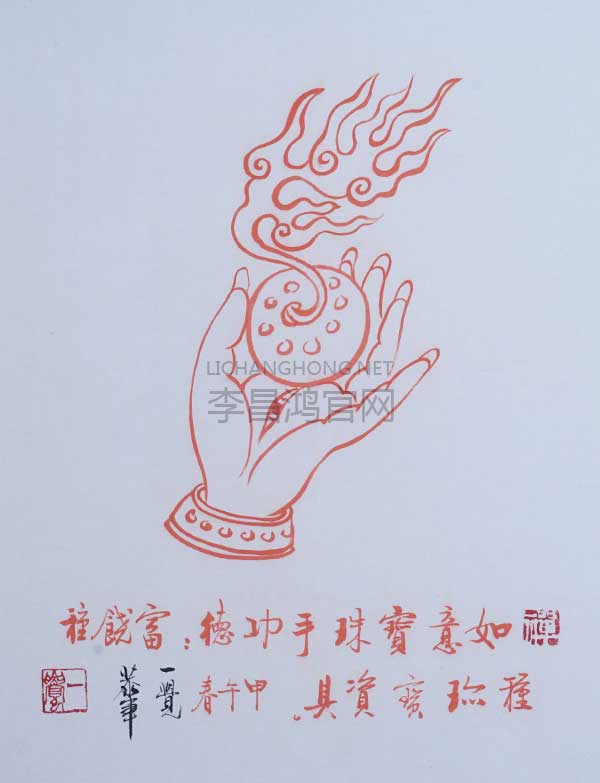 LICHANGHONG.NET
李昌鸿官网
禪
如意寶珠手功德：富饒種
種珍寶資具。甲午春
一覺
恭
一覺